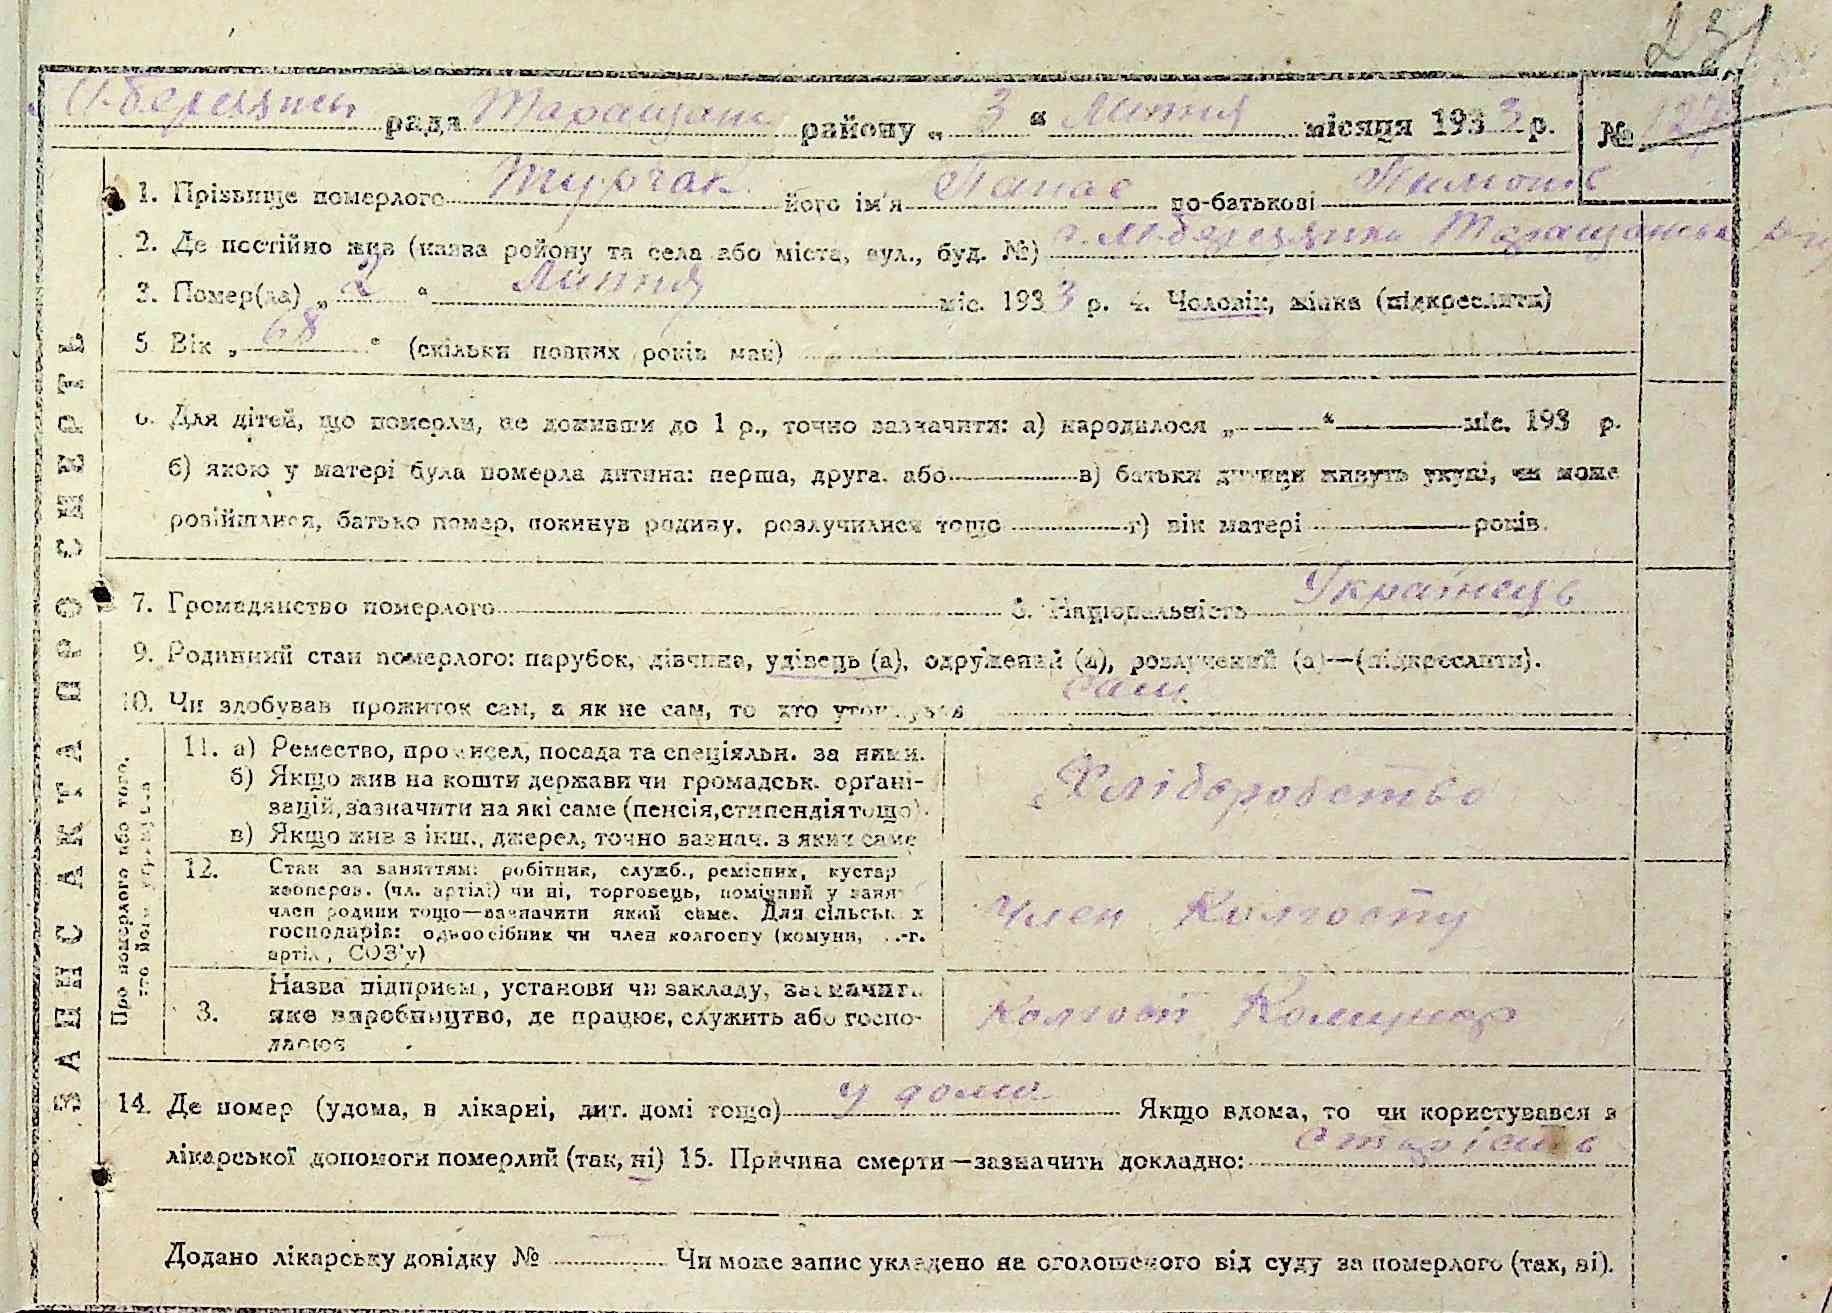 231
М-березянсь рада Таращансь району „ 3 “ Липня місяця 1933 р. № 127
1. Прізвище померлого Турчак його ім'я Панас по-батькові
2. Де постійно жив (назва району та села або міста, вул., буд. №) с. М-березянка Таращанськ
3. Помер(ла) „ 2 “ Липня міс. 1933 р. 4. Чоловік, жінка (підкреслити)
5 Вік „ 68 “ (скільки повних років мав)
6. Для дітей, що померли, не доживши до 1 р., точно зазначити: а) народилося „ “ міс. 193 р.
б) якою у матері була померла дитина: перша, друга, або в) батьки дитини живуть укупі, чи може
розійшлися, батько помер, покинув родину, розлучилися тощо г) вік матері років.
7. Громадянство померлого 8. Національність Українець
9. Родинний стан померлого: парубок, дівчина, удівець (а), одружений (а), розлучений (а)—(підкреслити).
10. Чи здобував прожиток сам, а як не сам, то хто утримував сам
ЗАПИС АКТА ПРО СМЕРТЬ
Про померлого або того, хто його утримував
11. а) Ремество, промисел, посада та спеціяльн. за ними.
б) Якщо жив на кошти держави чи громадськ. органі-
зацій, зазначити на які саме (пенсія, стипендія тощо).
в) Якщо жив з інш., джерел, точно зазнач. з яких саме
Хліборобство
12. Стан за заняттям: робітник, служб., ремісник, кустар
кооперов. (чл. артілі) чи ні, торговець, помічний у занят
член родини тощо—зазначити який саме. Для сільських
господарів: одноосібник чи член колгоспу (комуни, с.-г.
артіл, СОЗ'у)
Член Колгоспу
3. Назва підприєм, установи чи закладу, зазначити
яке виробництво, де працює, служить або госпо-
дарює
Колгосп Комунар
14. Де помер (удома, в лікарні, дит. домі тощо) у дома Якщо вдома, то чи користувався з
лікарської допомоги померлий (так, ні) 15. Причина смерти—зазначити докладно: старість
Додано лікарську довідку № Чи може запис укладено на оголошеного від суду за померлого (так, ні).